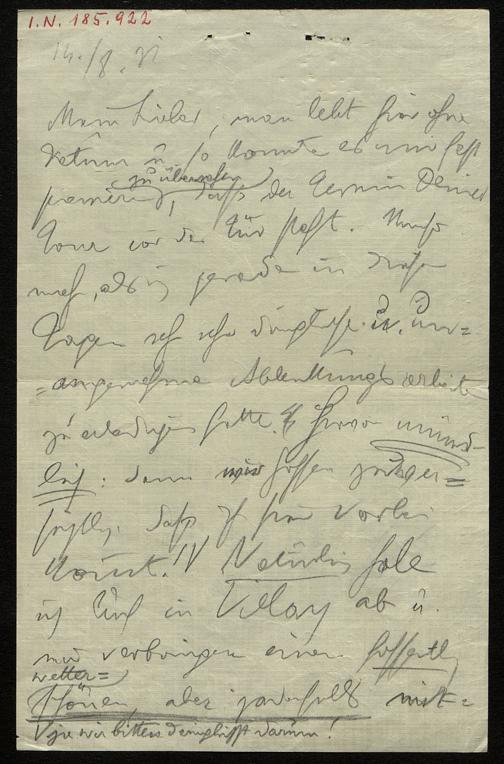 I.N. 185.922
14./8. 31
Mein Lieber, man lebt hier ohne
Datum u. so konnte es mir fast
passieren, zu übersehen, daß der Termin Deiner
Tour vor der Tür steht. Umso
mehr, als ich gerade in diesen
Tagen sehr sehr dringliche u. un=
=angenehme arbeit
zu erledigen hatte. hievon münd-
lich: denn wir hoffen zuver=
sichtl. daß Ihr hier vorbei
kommt! Natürlich hole
ich Euch in Villach ab u.
wir verbringen einen hoffentl.
wetter=
schönen, aber jedenfalls mit=
wir bitten demgemäß darum!